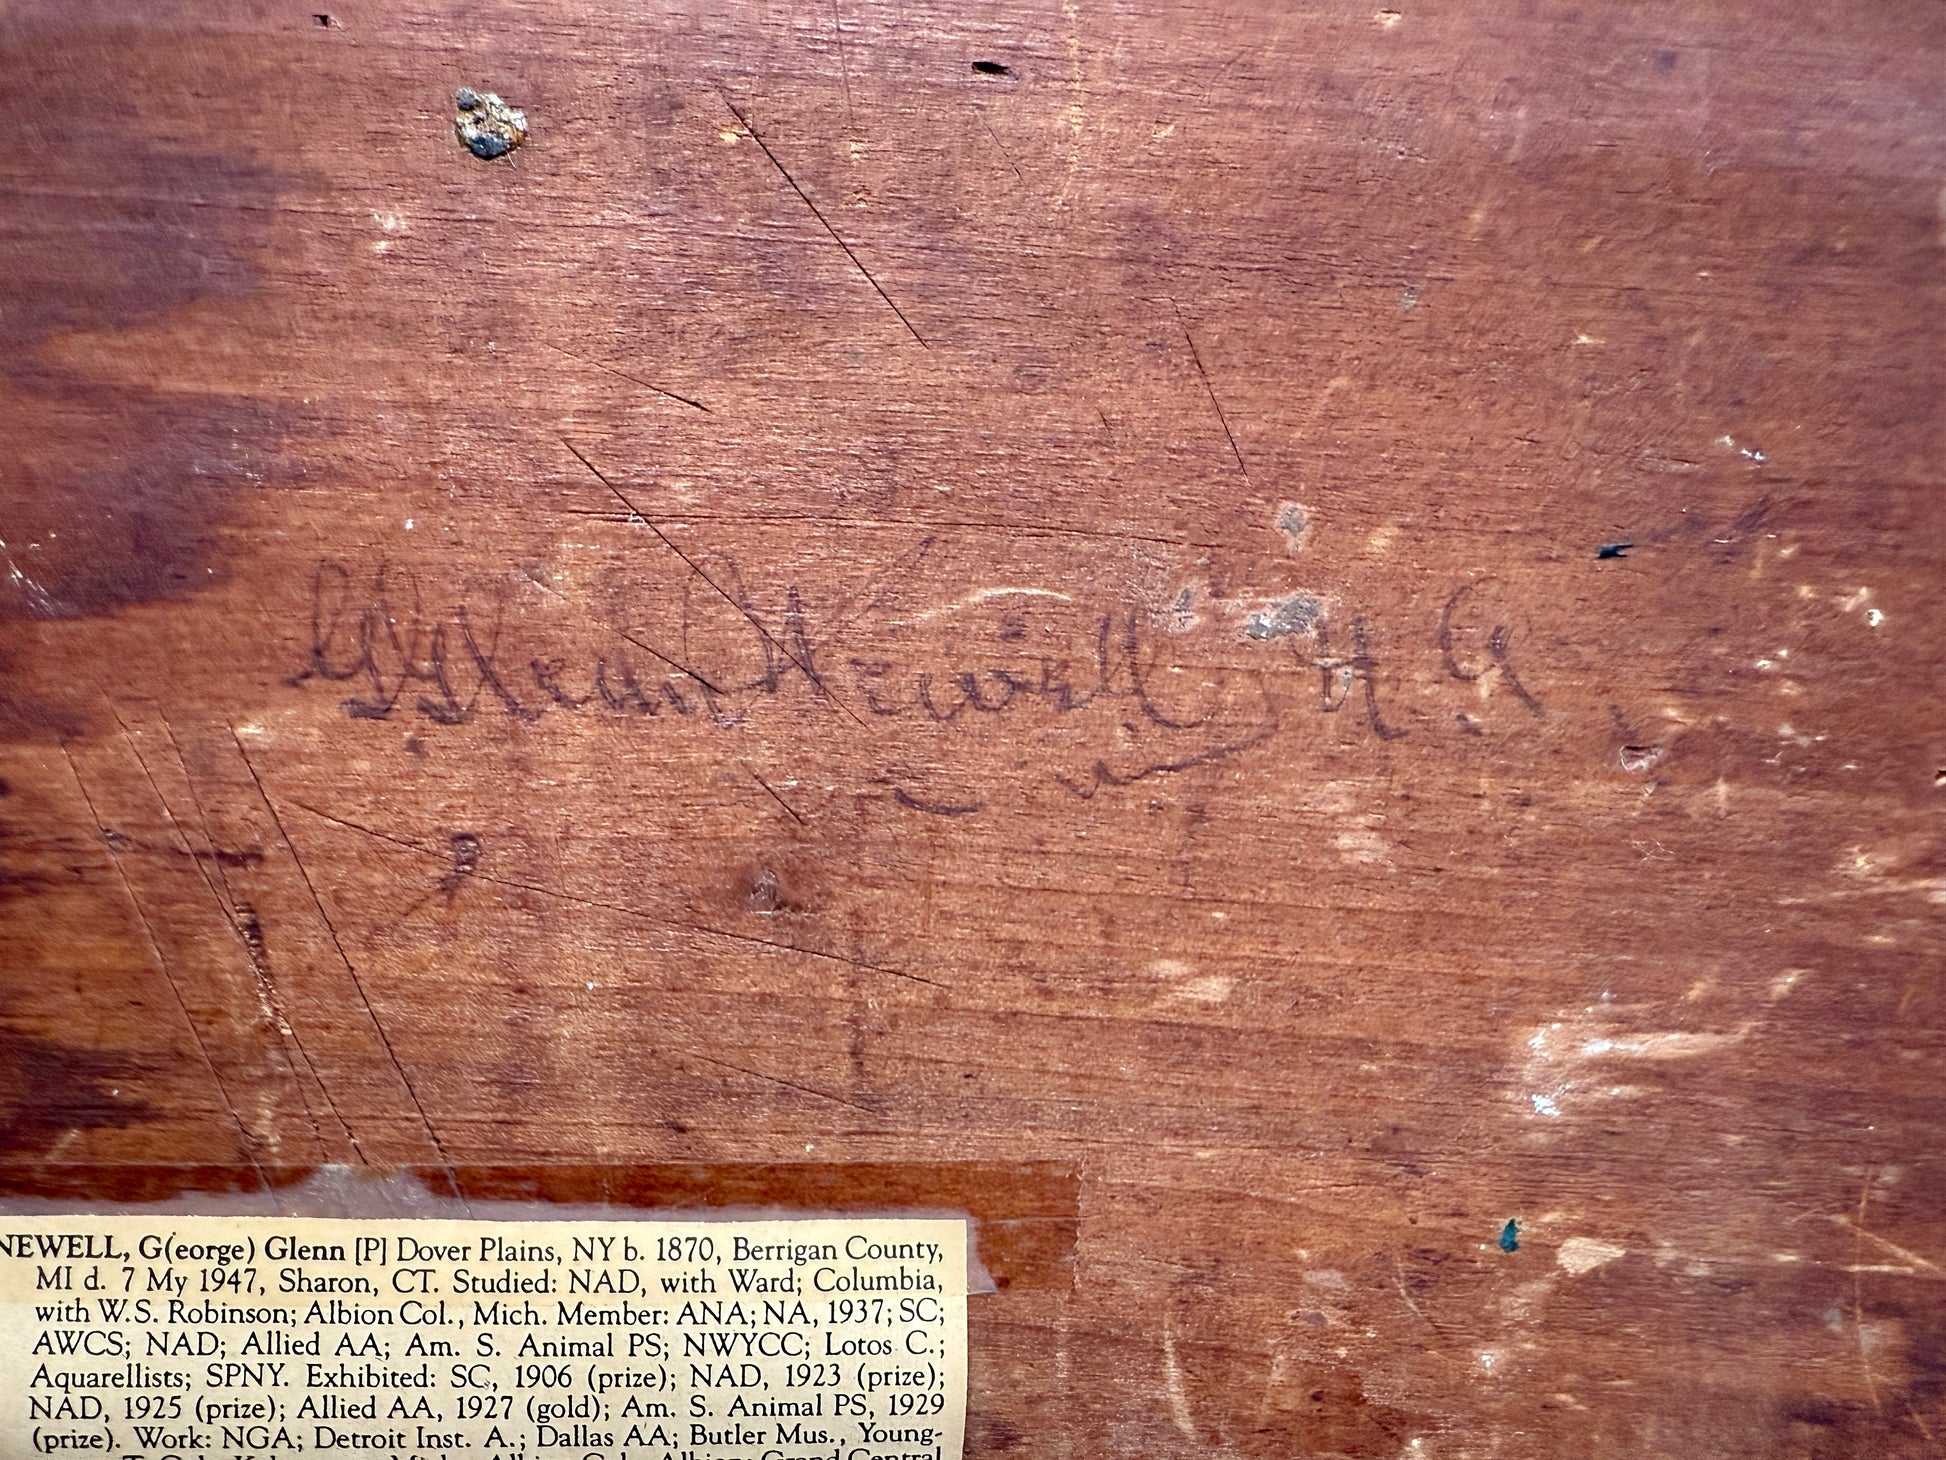 G Glenn Newell N.A.
NEWELL, G(eorge) Glenn [P] Dover Plains, NY b. 1870, Berrigan County,
MI d. 7 My 1947, Sharon, CT. Studied: NAD, with Ward; Columbia,
with W.S. Robinson; Albion Col., Mich. Member: ANA; NA, 1937; SC;
AWCS; NAD; Allied AA; Am. S. Animal PS; NWYCC; Lotos C.;
Aquarellists; SPNY. Exhibited: SC, 1906 (prize); NAD, 1923 (prize);
NAD, 1925 (prize); Allied AA, 1927 (gold); Am. S. Animal PS, 1929
(prize). Work: NGA; Detroit Inst. A.; Dallas AA; Butler Mus., Young-
Albion Col., Albion; Grand Central